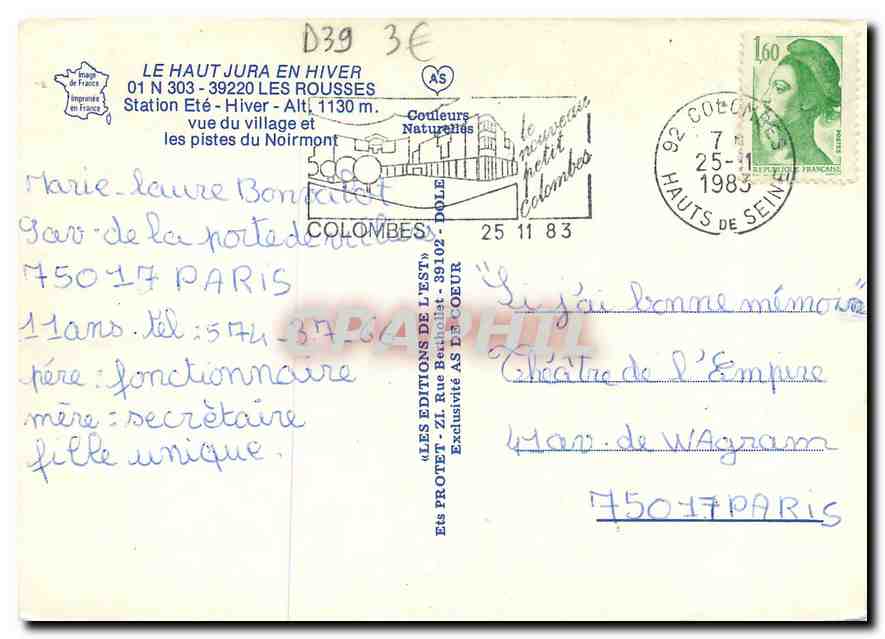 D39 3€
Image
de France
Imprimée
en France
LE HAUT JURA EN HIVER
01 N 303 - 39220 LES ROUSSES
Station Eté - Hiver - Alt. 1130 m.
vue du village et
les pistes du Noirmont
AS
Couleurs
Naturelles
le
nouveau
petit
Colombes
COLOMBES 25 11 83
92 COLOMBES
7
25-11
1983
HAUTS DE SEINE
1,60
POSTES
REPUBLIQUE FRANÇAISE
Marie-Laure
9 av. de la porte de
75017 PARIS
11 ans. tél : 574-37
père : fonctionnaire
mère : secrètaire
fille unique.
«LES EDITIONS DE L'EST»
Ets PROTET - ZI. Rue Berthollet - 39102 - DOLE
Exclusivité AS DE COEUR
CPAPHIL
"Si j'ai bonne mémoire"
Théâtre de l'Empire
41 av. de WAgram
75017 PARIS